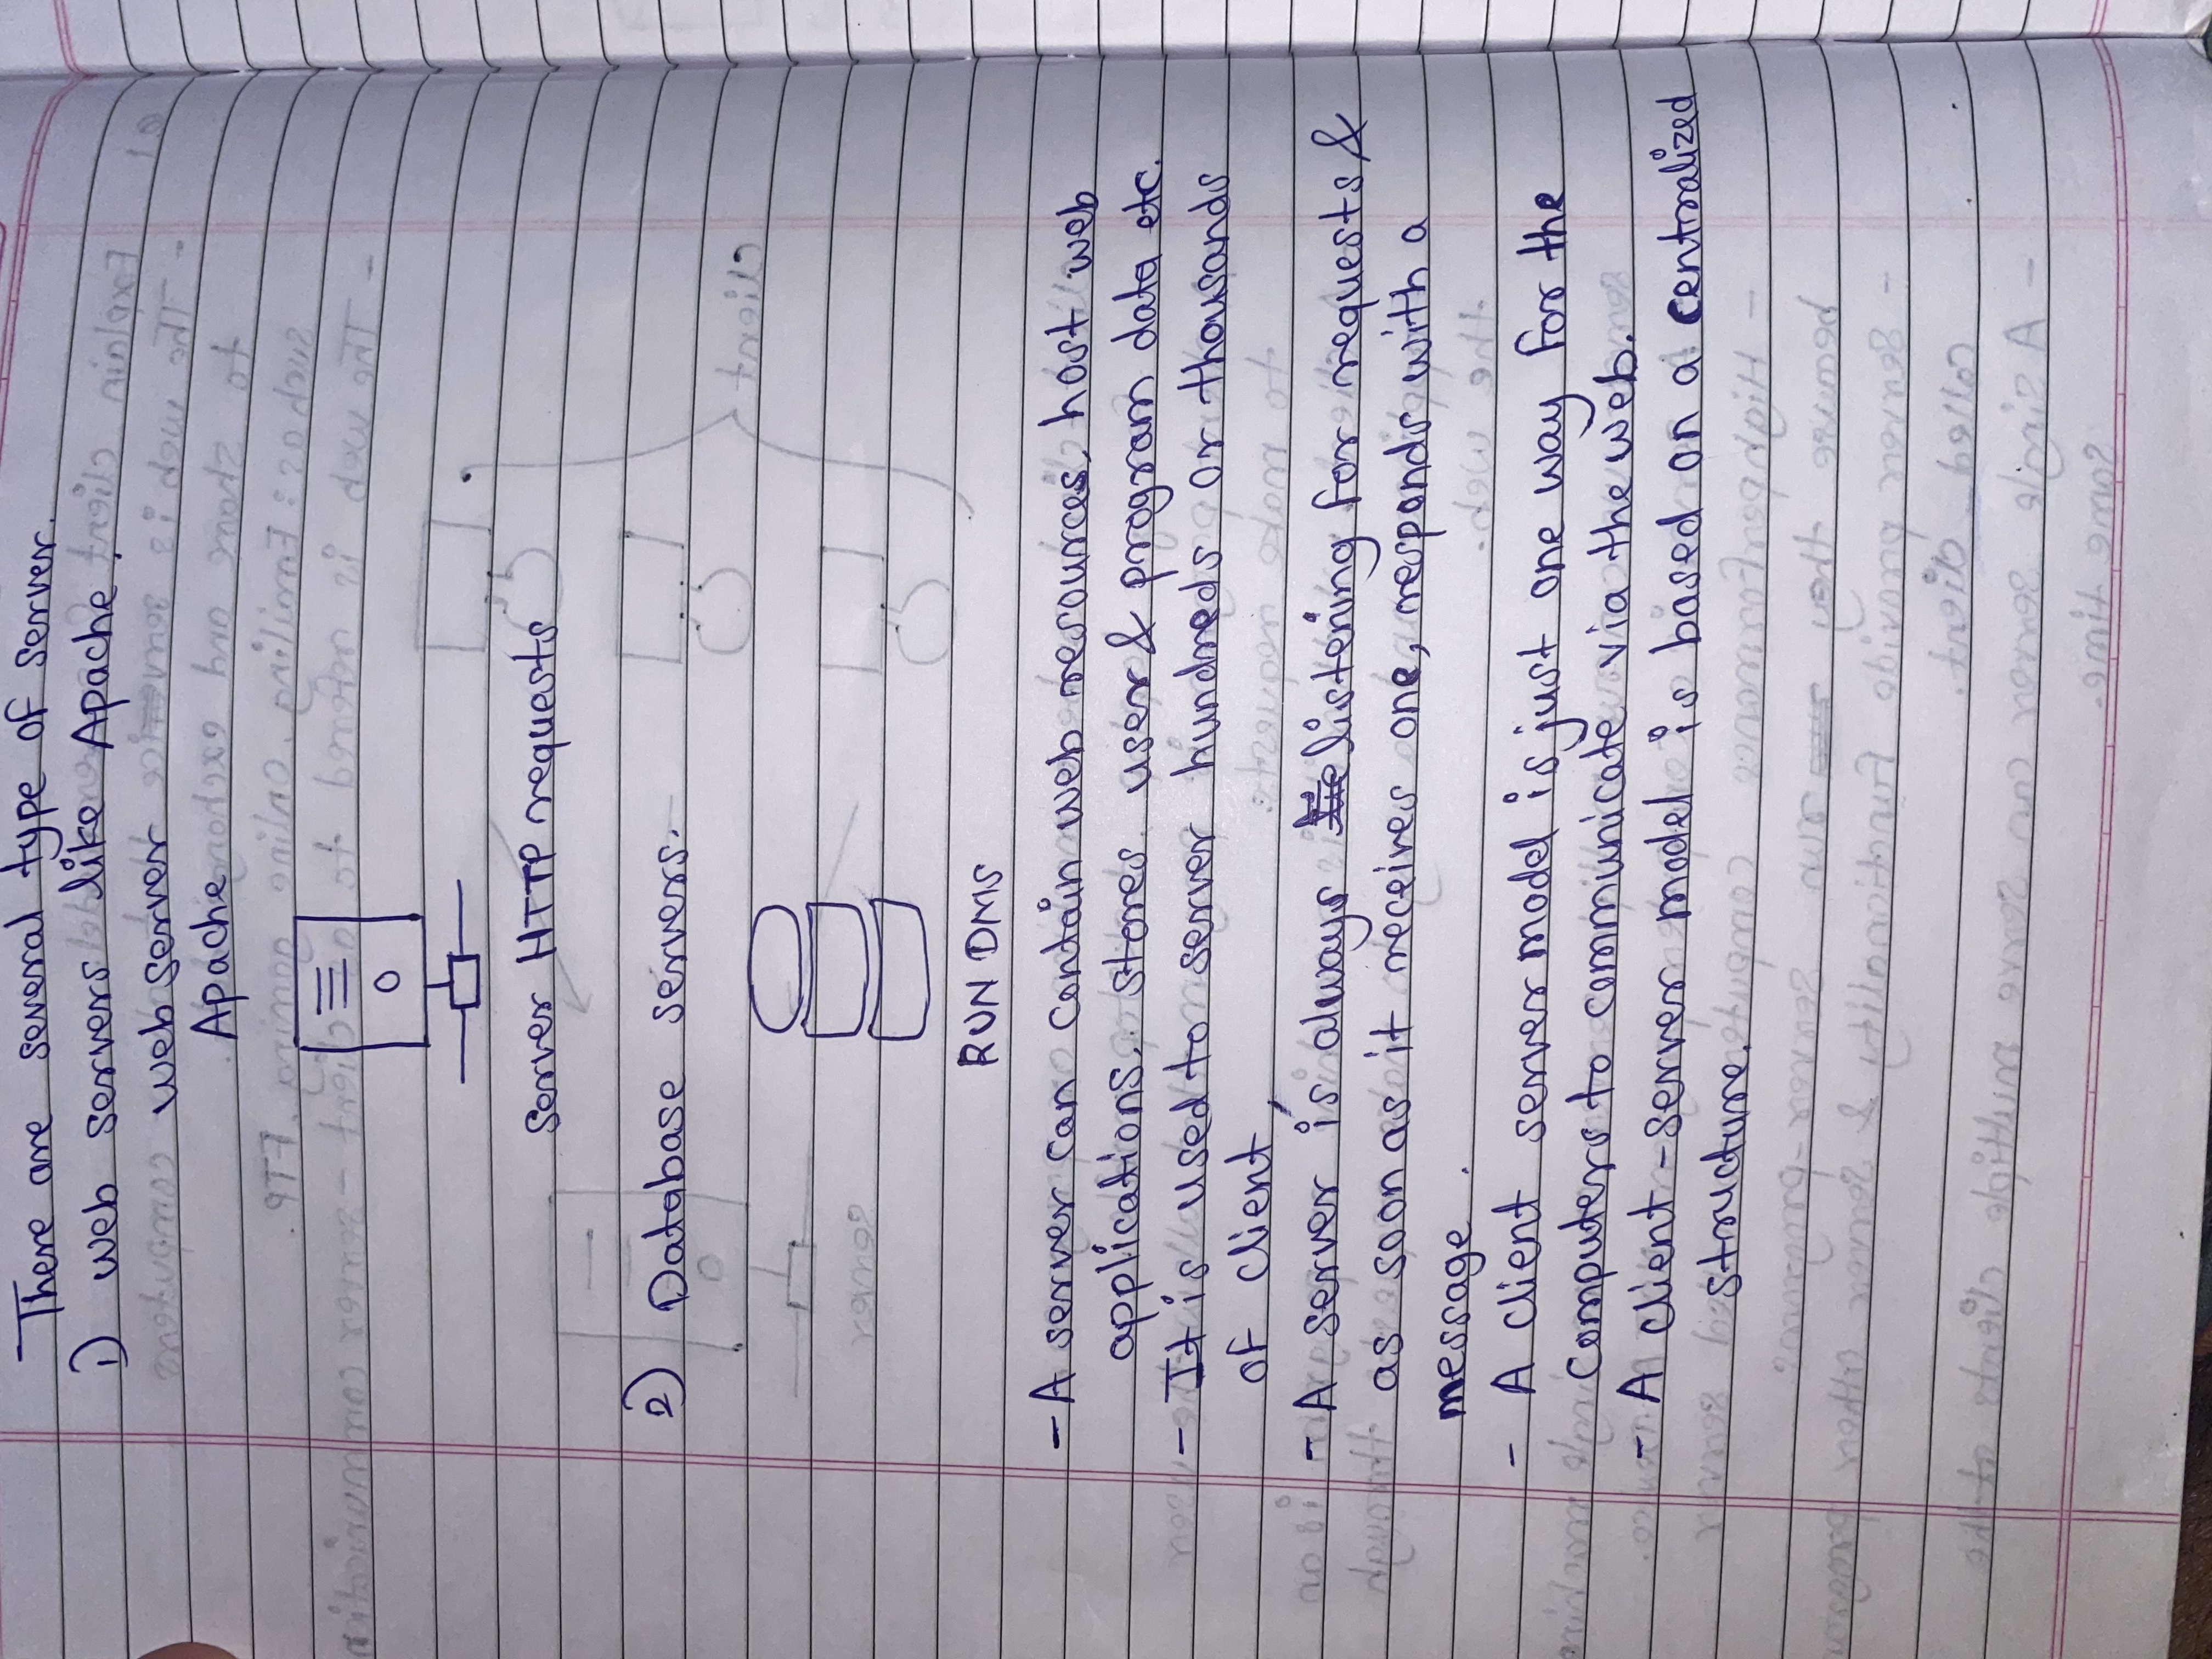 There are several type of server.
1) web servers like Apache.
web server
Apache
Server HTTP requests
2) Database servers.
RUN DMS
- A server can contain web resources, host web
applications, stores user & program data etc.
- It is used to server hundreds or thousands
of client,
- A server is always listening for requests &
as soon as it receives one, responds with a
message.
- A client server model is just one way for the
computers to communicate via the web.
- A client-server model is based on a centralized
structure.